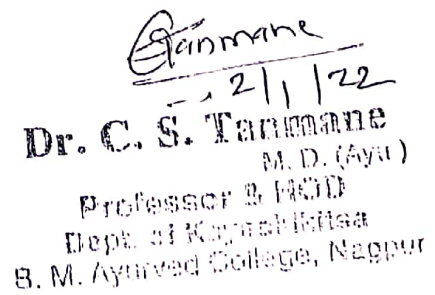 Tanmane
2/1/22
Dr. C. S. Tanmane
M. D. (Ayu)
Professor & HOD
Dept. of Kayachikitsa
B. M. Ayurved College, Nagpur